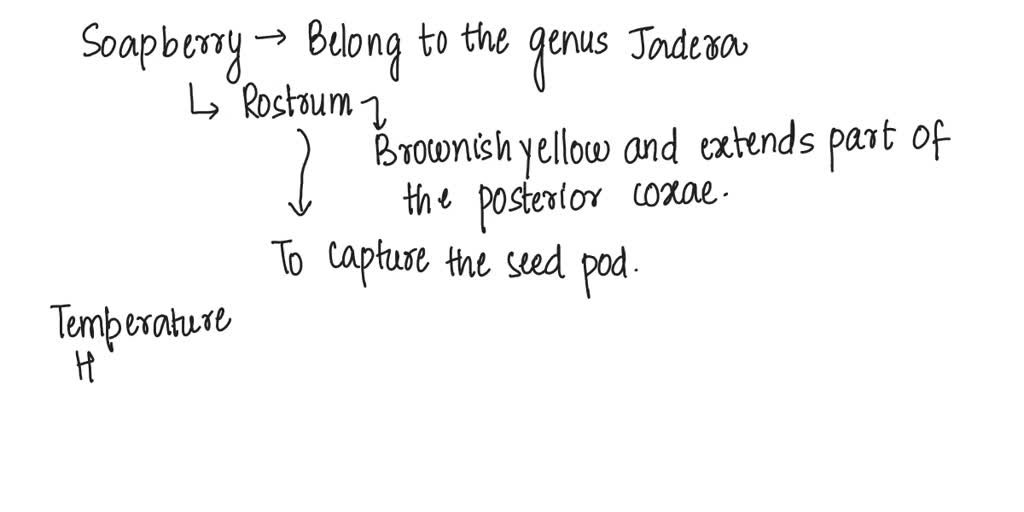 Soapberry → Belong to the genus Jadera
↳ Rostrum ↴
Brownish yellow and extends part of
the posterior coxae.
To capture the seed pod.
Temperature
H